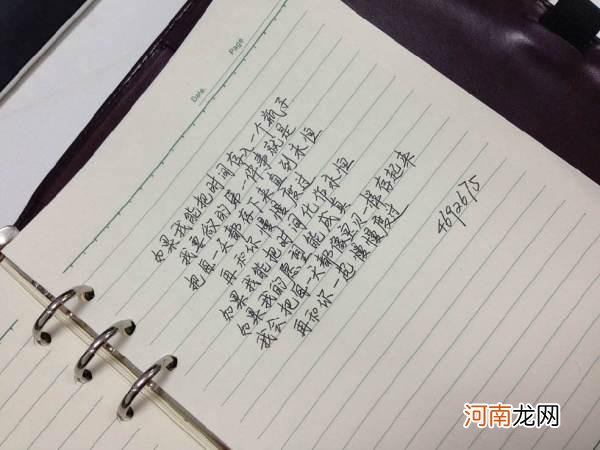 Date:
Page
如果我能把时间存入一个瓶子
我要做的第一件事就是
把每一天都存下来直到永恒
再和你慢慢度过
如果我能把时间化作永恒
如果我的愿望能成真
我会把每一天都像宝贝一样存起来
再和你一起慢慢度过
4692675
河南龙网